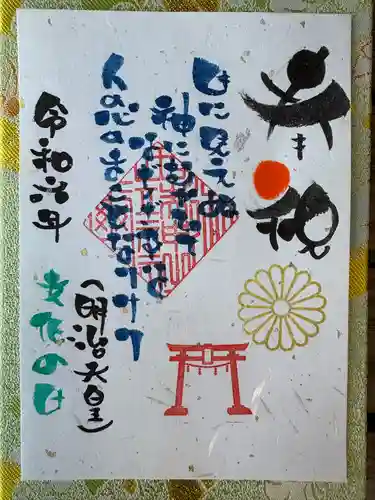 奉拝
目に見えぬ
神にむかひて
はぢざるは
人の心のまことなりけり
(明治天皇)
令和 年
文化の日